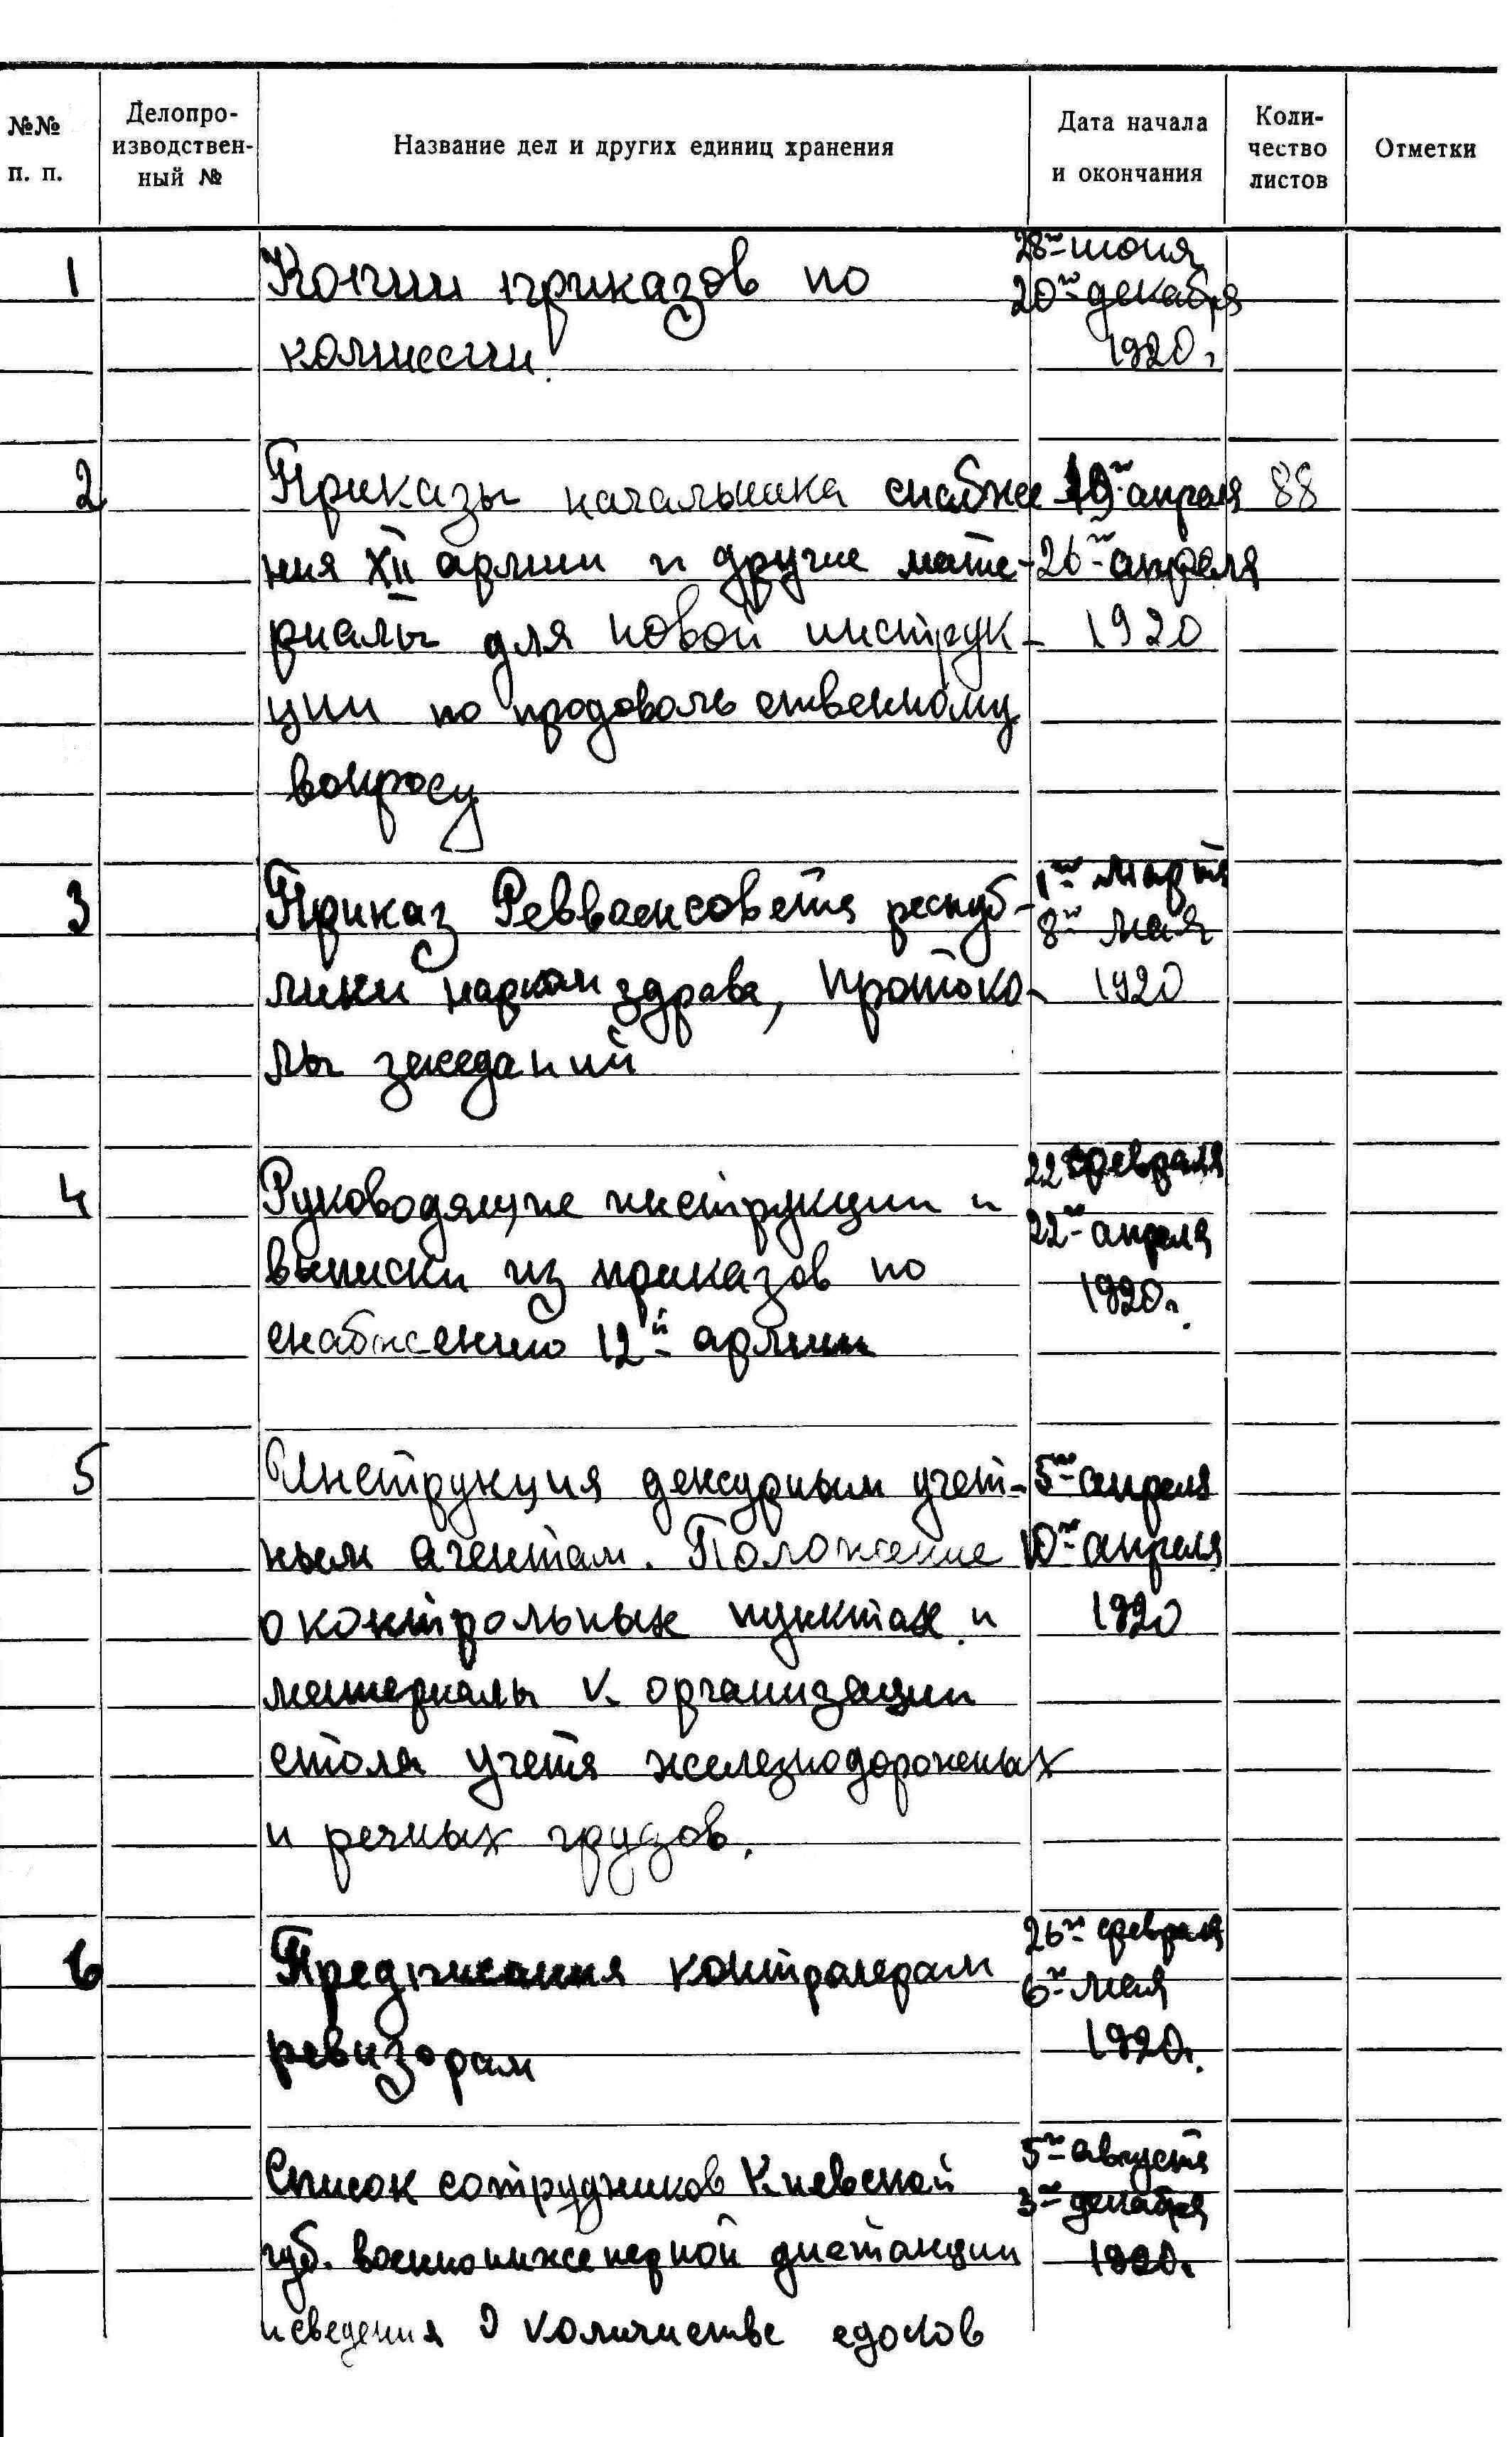 №№ п. п.
Делопро-
изводствен-
ный №
Название дел и других единиц хранения
Дата начала
и окончания
Коли-
чество
листов
Отметки
1 Копии приказов по
комиссии.
28го июня
20го декабря
1920г
2 Приказы начальника снабже
ния XII армии и другие мате-
риалы для новой инструк-
ции по продовольственному
вопросу
19го апреля
26го апреля
1920
88
3 Приказ Реввоенсовета респуб-
лики наркомздрава, протоко-
лы заседаний
1го марта
8го мая
1920
4 Руководящие инструкции и
выписки из приказов по
снабжению 12й армии
22го февраля
22го апреля
1920г.
5 Инструкция дежурным учет-
ным агентам. Положение
о контрольных пунктах и
материалы к организации
стола учета железнодорожных
и речных грузов.
5го апреля
10го апреля
1920
6 Предписания контролерам
ревизорам
26го февраля
6го мая
1920г.
Список сотрудников Киевской
губ. военно инженерной дистанции
и сведения о количестве едоков
5го августа
3го декабря
1920г.